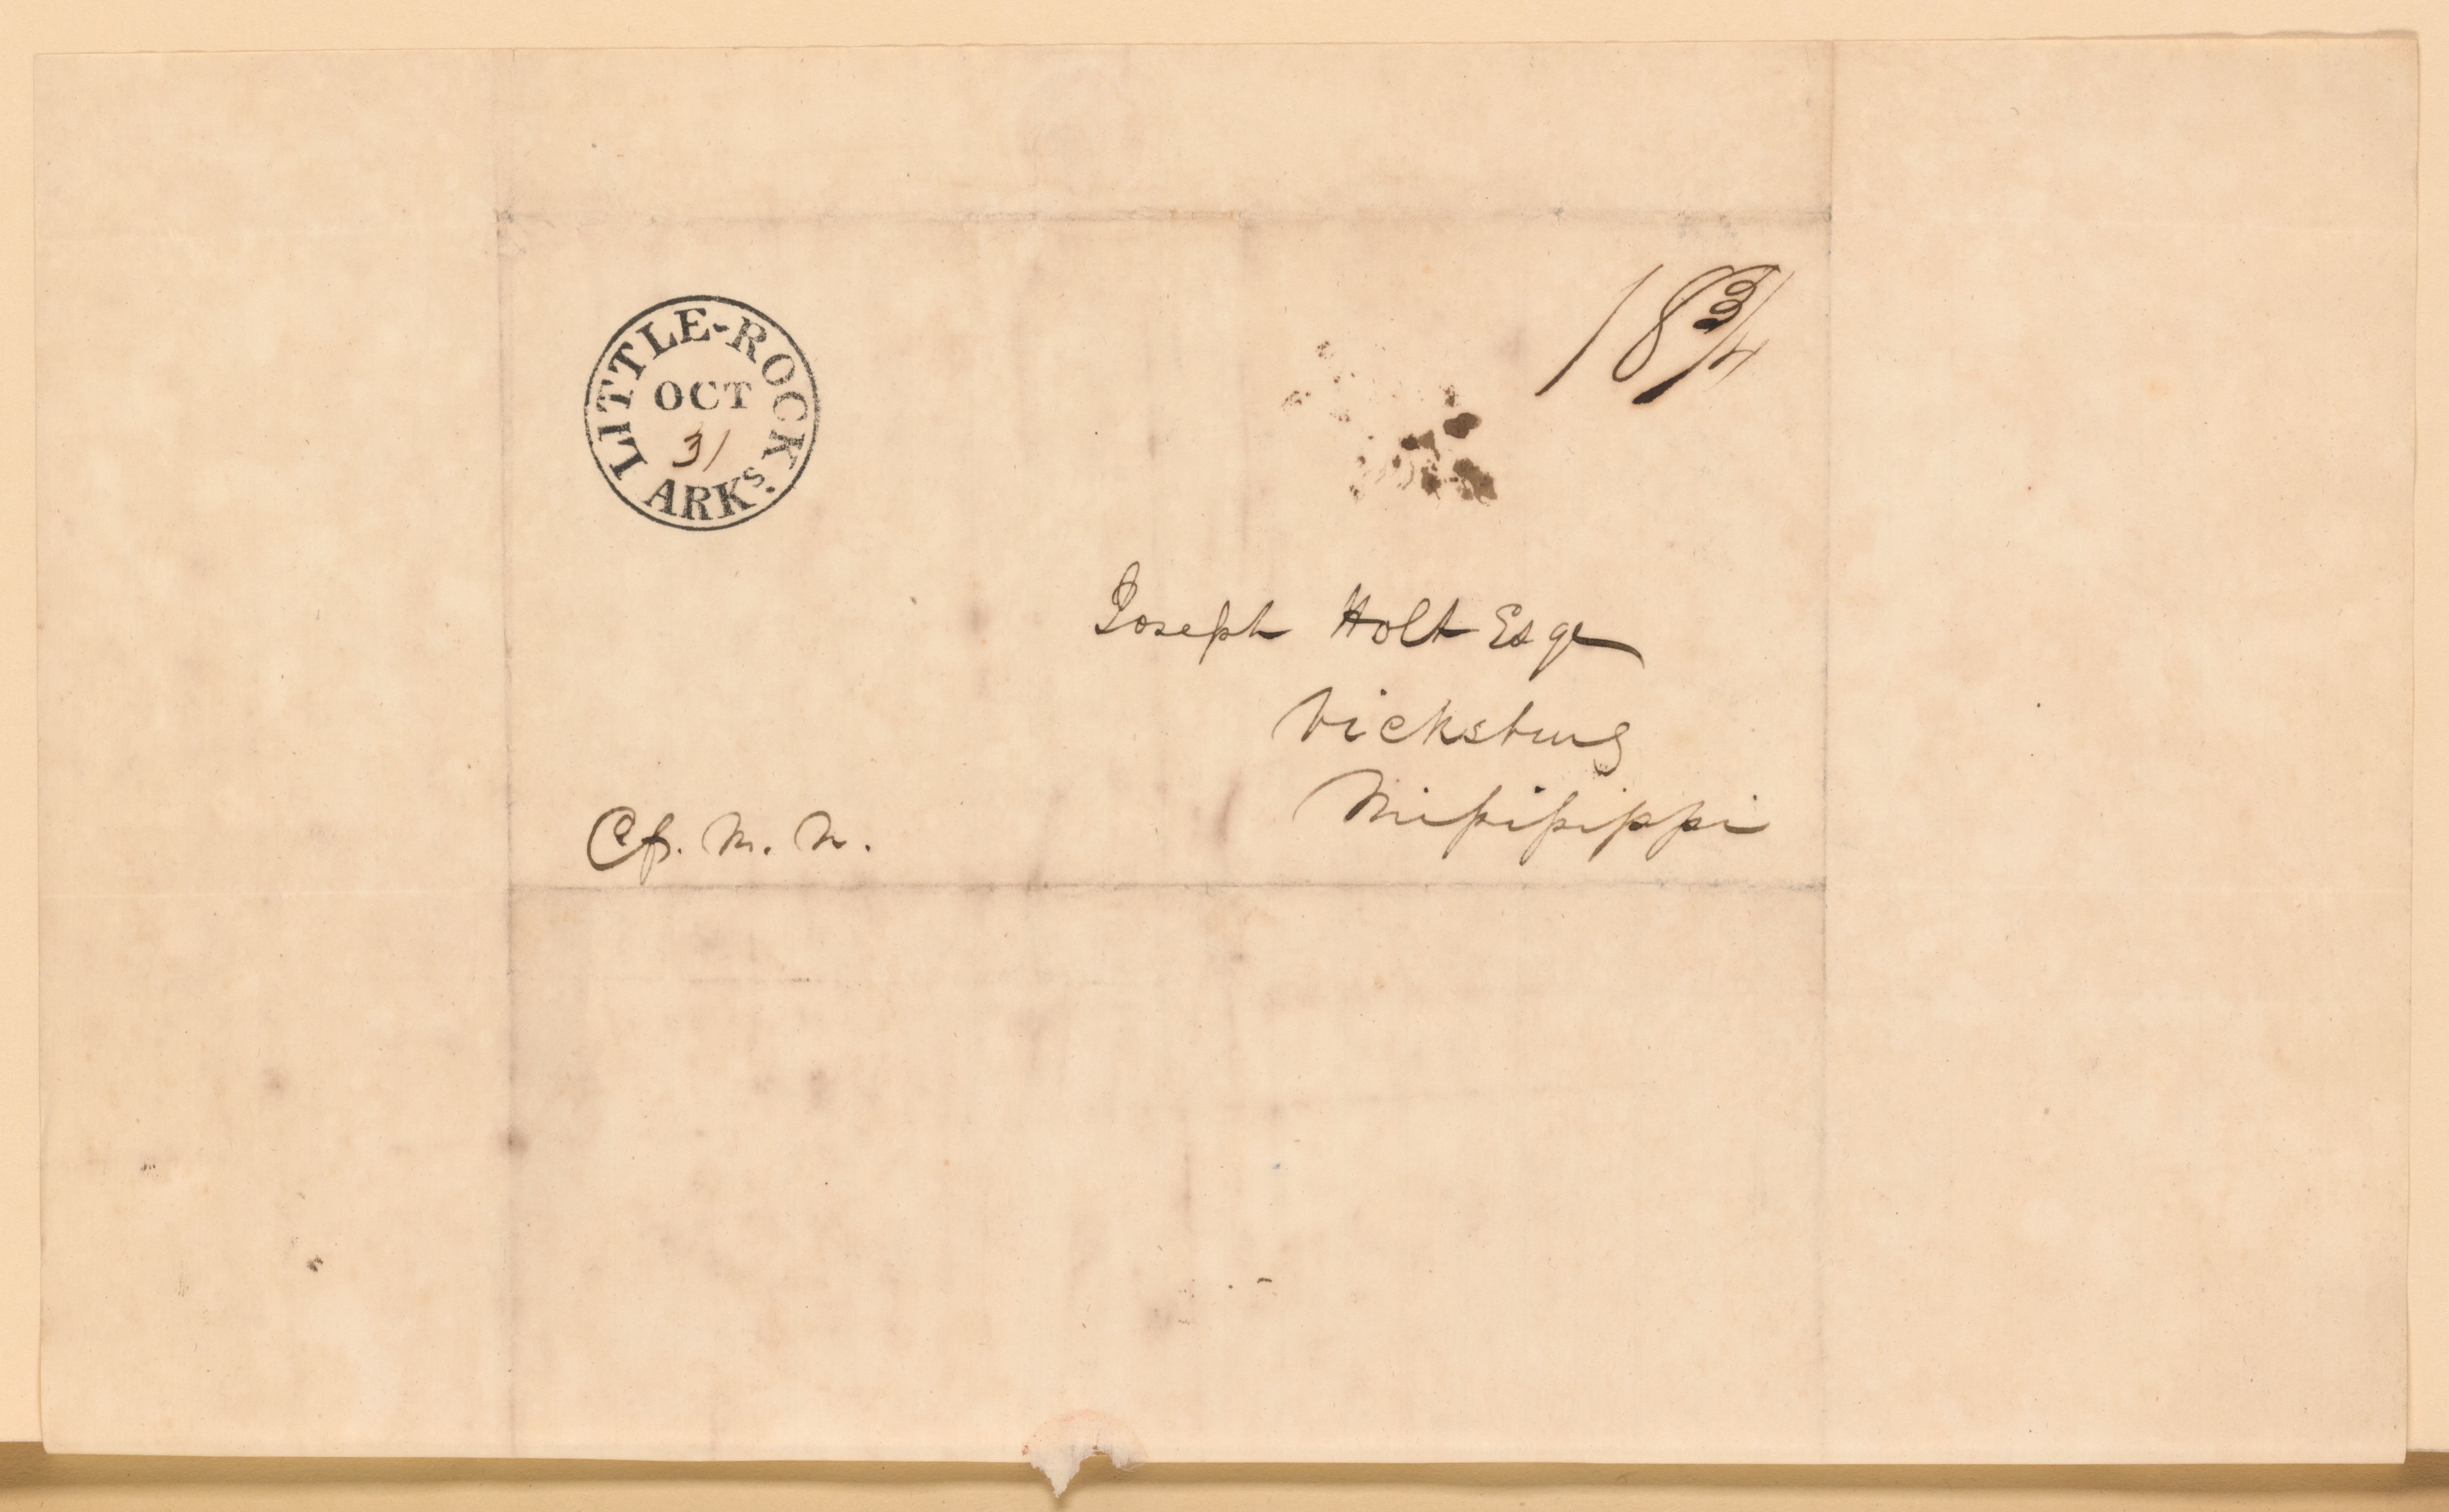 LITTLE-ROCK ARKS.
OCT
31
18 3/4
Joseph Holt Esqr
Vicksburg
Mississippi
M. M.